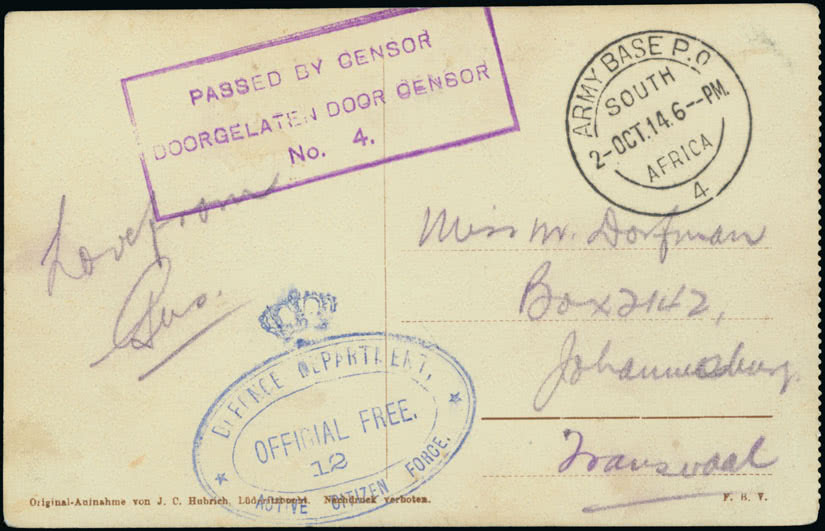 PASSED BY CENSOR
DOORGELATEN DOOR CENSOR
No. 4.
ARMY BASE P.O.
SOUTH
2-OCT.14.6--PM.
AFRICA
4
Love from
Gus.
Miss M. Dorfman
Box 2142,
Johannesburg
Transvaal
DEFENCE DEPARTMENT.
OFFICIAL FREE.
12
ACTIVE CITIZEN FORCE.
Original-Aufnahme von J. C. Hubrich, Lüderitzbucht. Nachdruck verboten.
F. B. V.